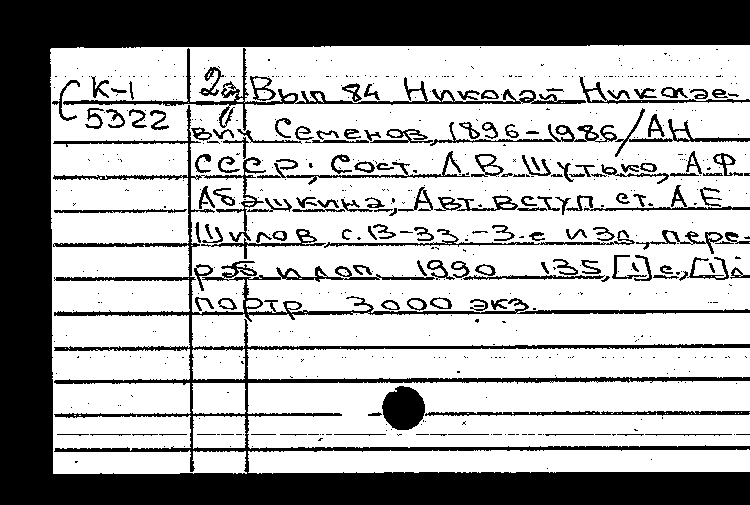 С К-1 2д Вып 84 Николай Николае-
5322
вич Семенов, 1896-1986/АН
СССР; Сост. Л.В. Шутько, А.Ф.
Абашкина; Авт. вступ. ст. А.Е
Шилов, с.13-33.-3-е изд, пере-
раб. и доп. 1990 135,[1]с.,[1]л
портр 3000 экз.